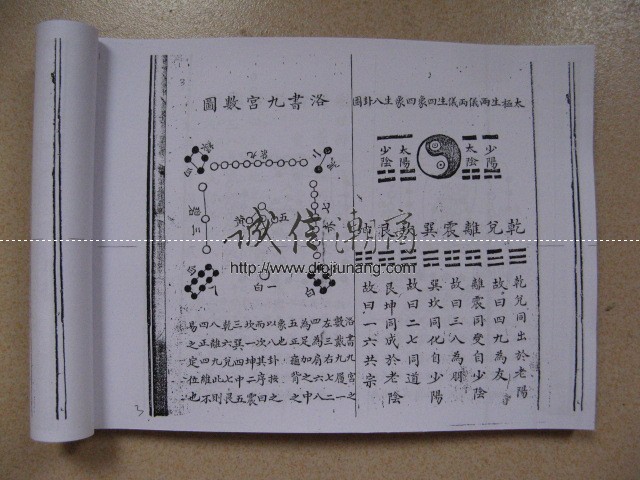 太極生兩儀兩儀生四象四象生八卦圖
少陽
太陰
太陽
少陰
乾兌離震巽坎艮坤
乾兌同出於老陽
故曰四九為友
離震同變自少陰
故曰三八為朋
巽坎同化自少陽
故曰二七同道
艮坤同成於老陰
故曰一六共宗
洛書九宮數圖
九紫
五
七
三碧
一白
洛書九宮之
數戴九履一
左三右七二
四為肩六八
為足加之中
五正龜背之
象也
以八卦按之
而次其序曰
坎一坤二震
三巽四中五
乾六兌七艮
八離九此
四正四維不
易之定位也
3
誠信潮商
http://www.diqiunang.com/